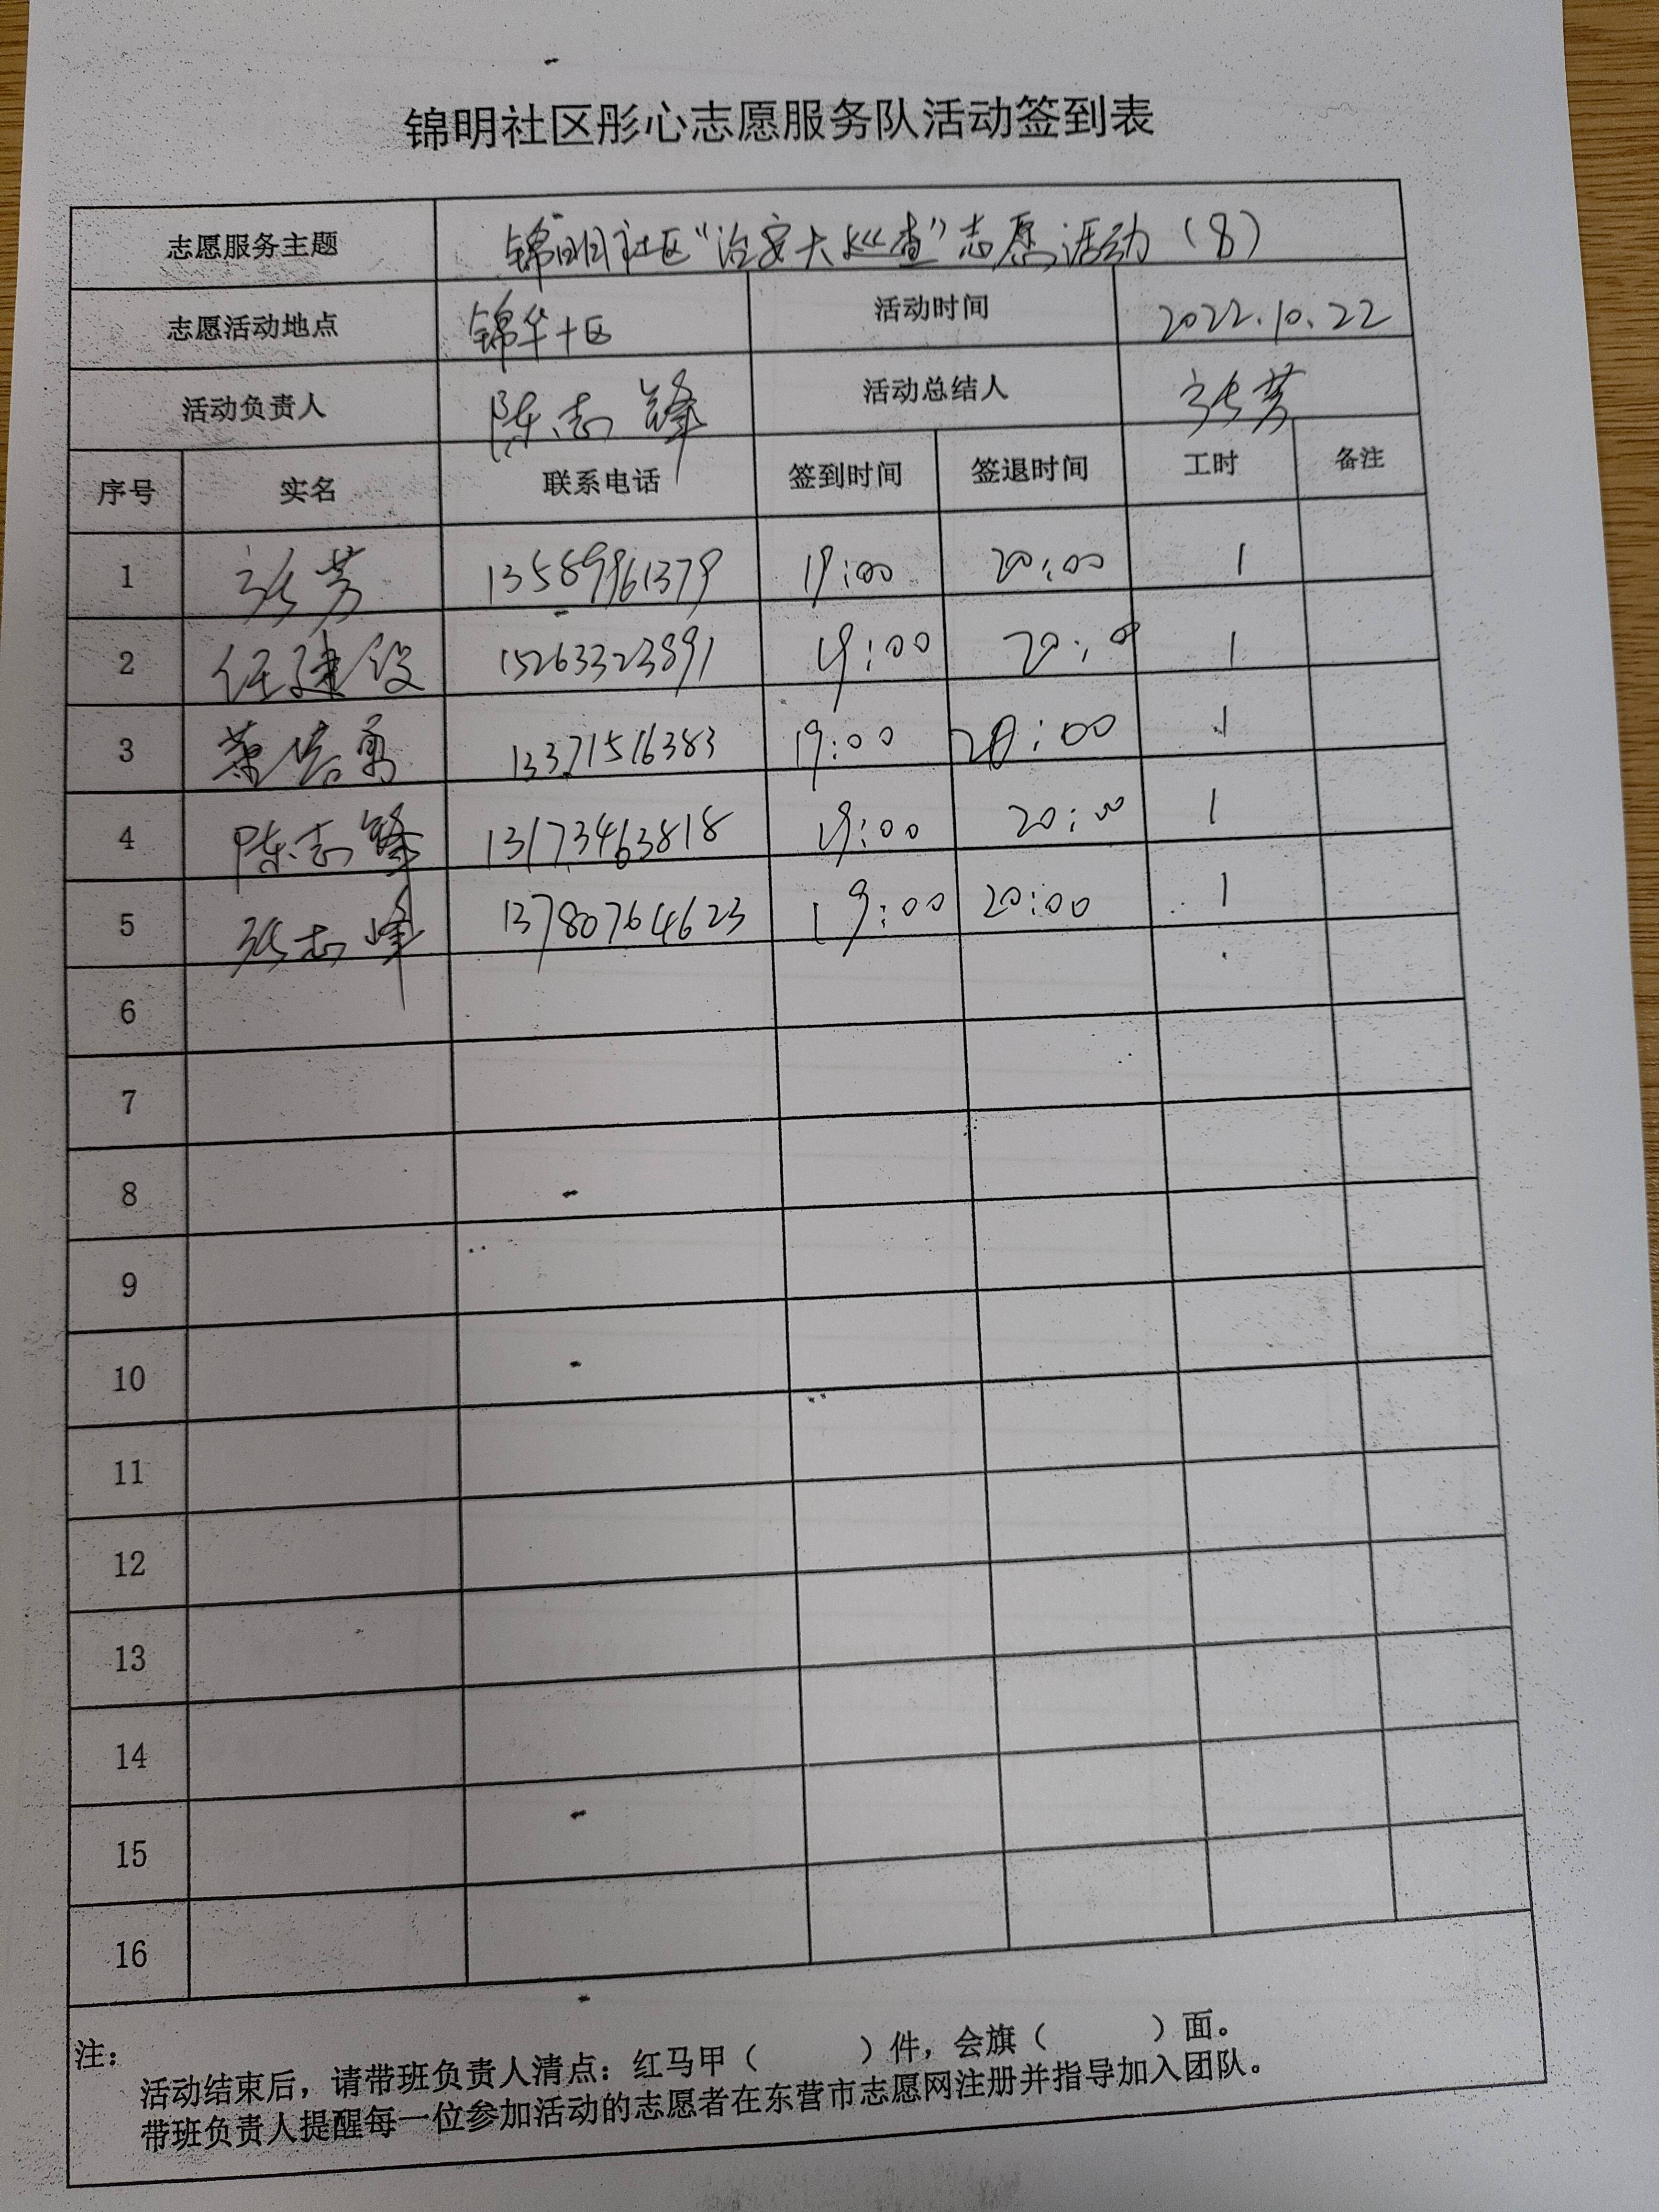 锦明社区彤心志愿服务队活动签到表
志愿服务主题 锦明社区“治安大巡查”志愿活动（8）
志愿活动地点 锦华十区 活动时间 2022.10.22
活动负责人 陈志锋 活动总结人 张芳
序号 实名 联系电话 签到时间 签退时间 工时 备注
1 张芳 13589961379 19:00 20:00 1
2 任建设 15263323891 19:00 20:00 1
3 13371516383 19:00 20:00 1
4 陈志锋 13173463818 19:00 20:00 1
5 张志峰 13780764623 19:00 20:00 1
6
7
8
9
10
11
12
13
14
15
16
注：
活动结束后，请带班负责人清点：红马甲（ ）件，会旗（ ）面。
带班负责人提醒每一位参加活动的志愿者在东营市志愿网注册并指导加入团队。